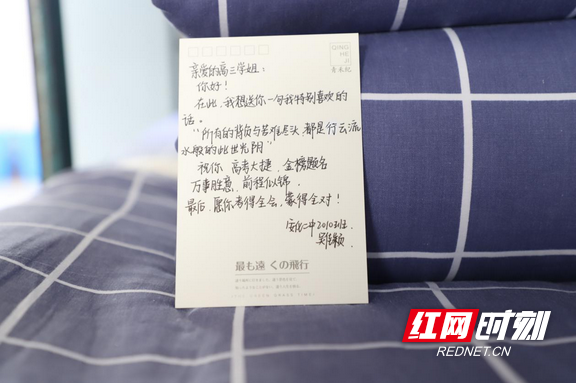 亲爱的高三学姐：
你好！
在此，我想送你一句我特别喜欢的
话。
"所有的背负与苦难尽头，都是行云流
水般的此世光阴"
祝你 高考大捷，金榜题名
万事胜意，前程似锦。
最后，愿你考得全会，蒙得全对！
安化二中2010班
最も遠くの飛行
红网时刻
REDNET.CN